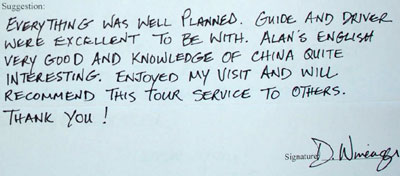 Suggestion:
EVERYTHING WAS WELL PLANNED. GUIDE AND DRIVER
WERE EXCELLENT TO BE WITH. ALAN'S ENGLISH
VERY GOOD AND KNOWLEDGE OF CHINA QUITE
INTERESTING. ENJOYED MY VISIT AND WILL
RECOMMEND THIS TOUR SERVICE TO OTHERS.
THANK YOU!
Signature: D.